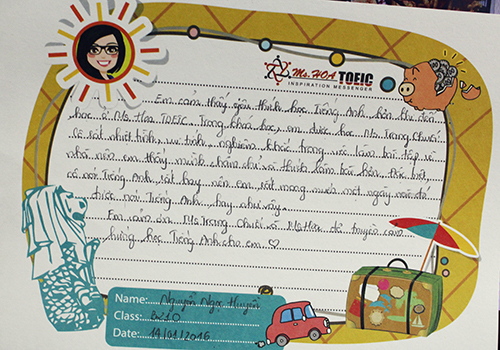 Ms. HOA TOEIC
INSPIRATION MESSENGER
Em cảm thấy yêu thích học Tiếng Anh hơn khi đến
học ở Ms Hoa TOEIC. Trong khoá học, em được học Ms Trang Chuối,
Cô rất nhiệt tình, vui tính, nghiêm khắc trong việc làm bài tập về
nhà nên em thấy mình chăm chỉ và thích làm bài hơn. Đặc biệt,
cô nói Tiếng Anh rất hay nên em rất mong muốn một ngày nào đó
được nói Tiếng Anh hay như vậy.
Em cảm ơn Ms Trang Chuối và Ms Hiền đã truyền cảm
hứng học Tiếng Anh cho em ♡
Name: Nguyễn Ngọc Huyền
Class:
Date: 14/01/2016